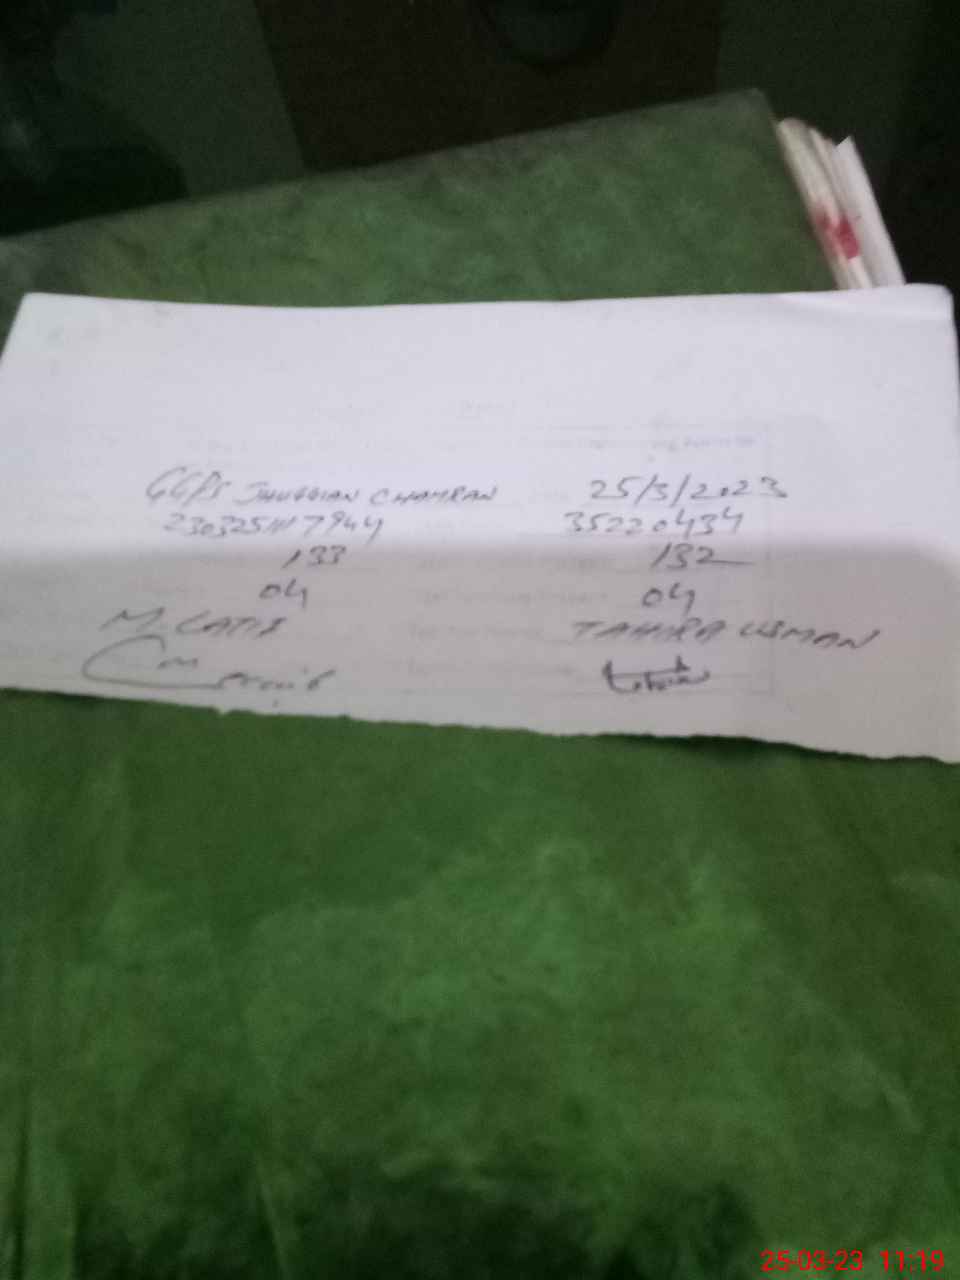 GGPS JHUGGIAN CHAMRAN 25/3/2023
35220434
133 132
04 04
M. LATIF TAHIRA USMAN
25-03-23 11:19